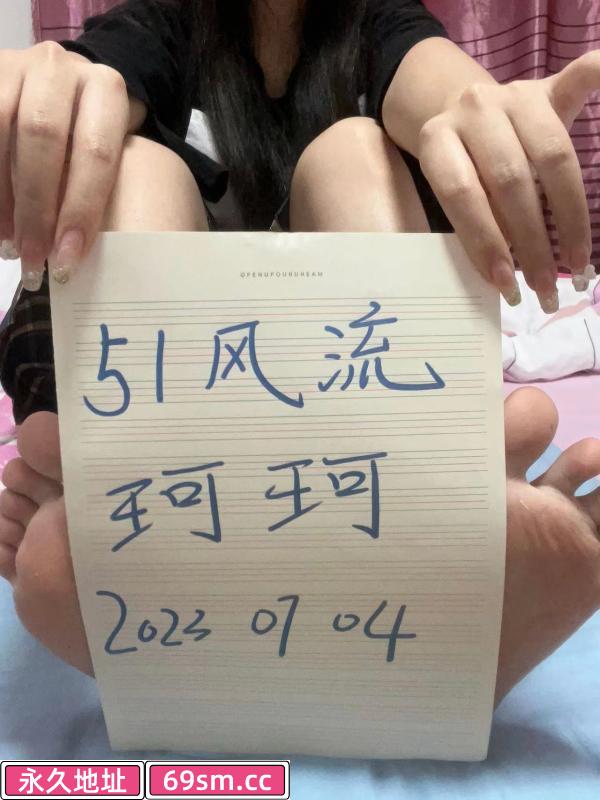 OPENUPOURDREAM
51风流
珂珂
2023 07 04
永久地址 69sm.cc